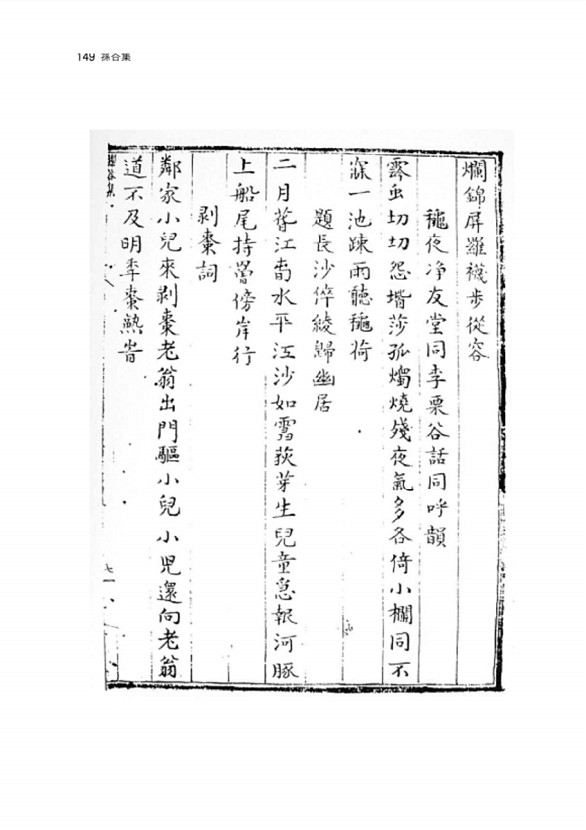 149 孫合集
爛錦屏羅襪步從容
穐夜净友堂同李栗谷話同呼韻
露虫切切怨堦莎孤燭燒殘夜氣多各倚小欄同不
寐一池踈雨聽穐荷
題長沙倅綾歸幽居
二月 江南水平江沙如雪荻芽生兒童急報河豚
上船尾持罾傍岸行
剥棗詞
鄰家小兒來剥棗老翁出門驅小兒小児還向老翁
道不及明年棗熟時
谷集
七一